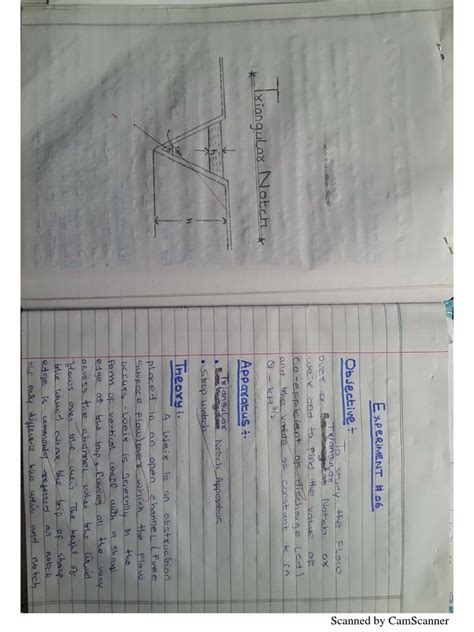 * Triangular Notch *
h
h
EXPERIMENT # 06
Objective:-
To study the flow
over a Triangular Notch or
weir and to find the value of
co-efficient of discharge (cd)
and the value of constant k in
Apparatus:-
• Triangular Notch Apparatus
• Stop watch
Theory:-
A weir is an obstruction
placed in an open channel (free
surface flow) over which the flow
occurs. Weir is generally in the
form of vertical wall with a sharp
edge at the top, flowing all the way
across the channel. When the liquid
flows over the weir. The height of
the liquid above the top of sharp
edge is commonly referred as notch
the only difference b/w weir and notch
Scanned by CamScanner